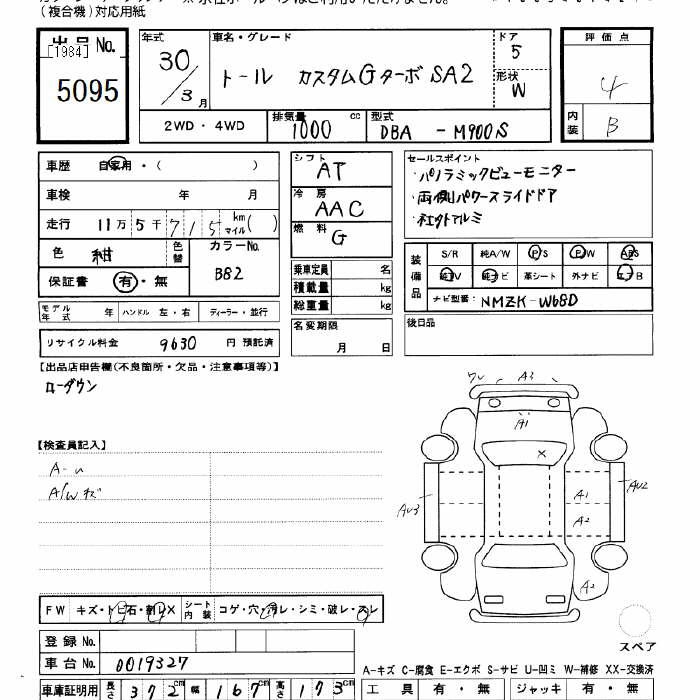 (複合機)対応用紙
出品 No. [1984]
5095
年式 30/3月
車名・グレード トール カスタムGターボ SA2
ドア 5
形状 W
2WD・4WD
排気量 1000 cc
型式 DBA - M900S
評価点 4
内装 B
車歴 自家用・( )
車検 年 月
走行 11万5千715 km マイル( )
色 紺 色替 カラーNo. B82
保証書 有・無
モデル年式 年 ハンドル 左・右 ディーラー・並行
リサイクル料金 9630 円 預託済
シフト AT
冷房 AAC
燃料 G
乗車定員 名
積載量 kg
総重量 kg
名変期限 月 日
セールスポイント
・パノラミックビューモニター
・両側パワースライドドア
・社外アルミ
装備品 S/R 純A/W P/S P/W ABS
純TV 純ナビ 革シート 外ナビ エアB
ナビ型番: NMZK-W68D
後日品
【出品店申告欄(不良箇所・欠品・注意事項等)】
ローダウン
【検査員記入】
A-u
A/Wキズ
FW キズ・トビ石・割レX シート内装 コゲ・穴・汚レ・シミ・破レ・スレ
登録 No.
車台 No. 0019327
車庫証明用 長さ 372cm 幅 167cm 高さ 173cm
A3
A1
X
AU3
A1
A2
AU2
A2
スペア
A-キズ C-腐食 E-エクボ S-サビ U-凹ミ W-補修 XX-交換済
工具 有・無 ジャッキ 有・無